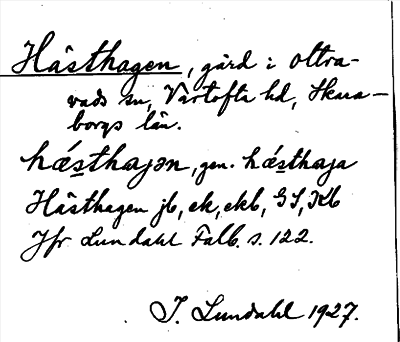 Hästhagen, gård i Oltra-
vads sn, Vartofta hd, Skara-
borgs län.
hǽsthaȷən, gen. hǽsthaȷa
Hästhagen jb, ek, ekb, GS, Kb
Jfr Lundahl Falb. s. 122.
I. Lundahl 1927.